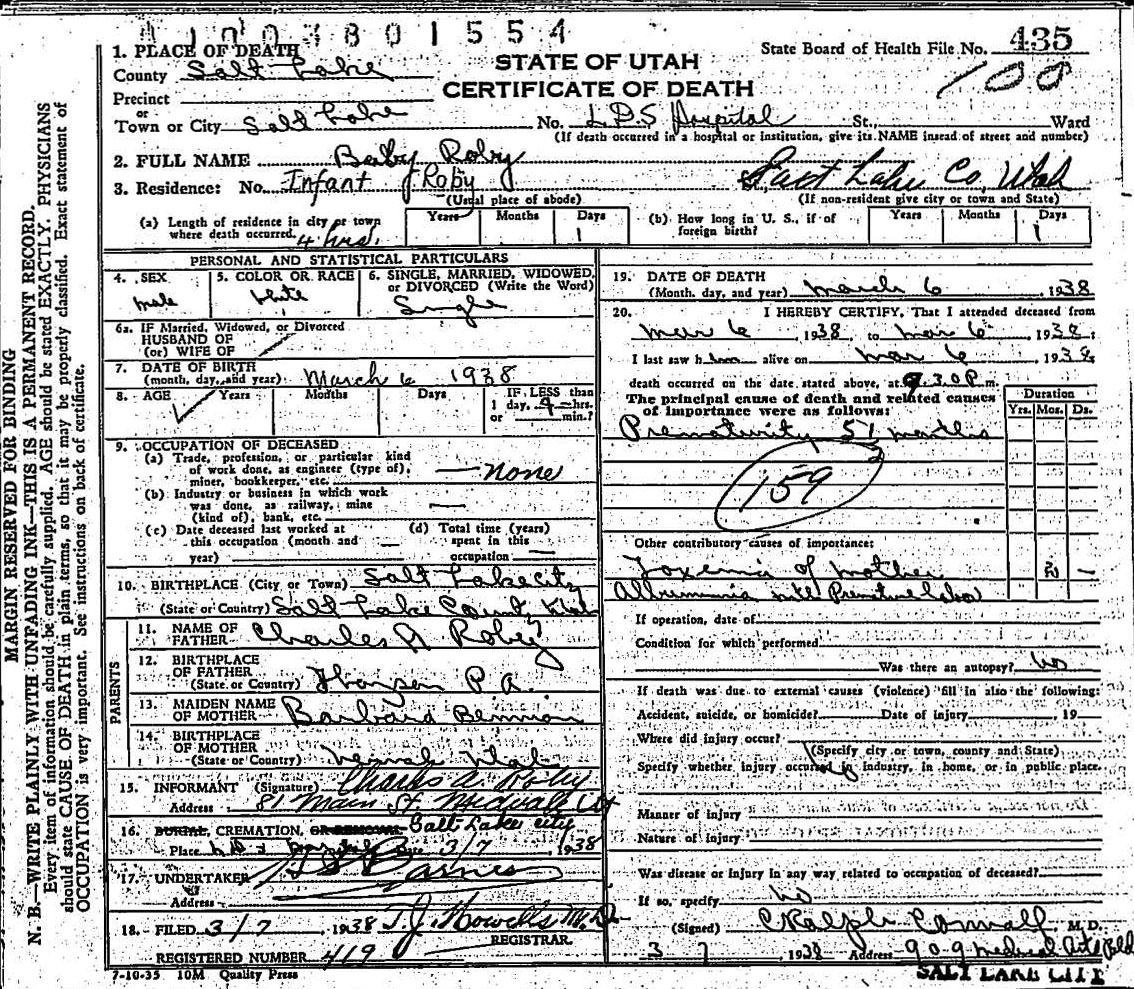 1003801554
1. PLACE OF DEATH
County Salt Lake
STATE OF UTAH
CERTIFICATE OF DEATH
State Board of Health File No. 435
100
Precinct
or
Town or City Salt Lake No. L.D.S Hospital St., Ward
(If death occurred in a hospital or institution, give its NAME instead of street and number)
2. FULL NAME Baby Roby
3. Residence: No. Infant Roby Salt Lake Co, Utah
(Usual place of abode) (If non-resident give city or town and State)
(a) Length of residence in city or town where death occurred. 4 hrs.
Years Months Days 1
(b) How long in U. S., if of foreign birth?
Years Months Days 1
PERSONAL AND STATISTICAL PARTICULARS
4. SEX male
5. COLOR OR RACE White
6. SINGLE, MARRIED, WIDOWED, or DIVORCED (Write the Word) Single
6a. IF Married, Widowed, or Divorced
HUSBAND OF
(or) WIFE OF
7. DATE OF BIRTH
(month, day, and year) March 6 1938
8. AGE Years Months Days
IF LESS than
1 day, 4 hrs.
or min.?
9. OCCUPATION OF DECEASED
(a) Trade, profession, or particular kind
of work done, as engineer (type of),
miner, bookkeeper, etc. — none
(b) Industry or business in which work
was done, as railway, mine
(kind of), bank, etc. —
(c) Date deceased last worked at
this occupation (month and
year) —
(d) Total time (years)
spent in this
occupation —
10. BIRTHPLACE (City or Town) Salt Lake City
(State or Country) Salt Lake County Utah
PARENTS
11. NAME OF
FATHER Charles A Roby
12. BIRTHPLACE
OF FATHER
(State or Country) P A.
13. MAIDEN NAME
OF MOTHER Barbara Bennion
14. BIRTHPLACE
OF MOTHER
(State or Country) Utah
15. INFORMANT (Signature) Charles A. Roby
Address 81 Main St. Midvale Ut
16. BURIAL, CREMATION, OR REMOVAL Salt Lake City
Place L D S Hospital Date 3/7, 1938
17. UNDERTAKER
Address
18. FILED 3/7 1938 T.J. Howells M.D.
REGISTRAR.
REGISTERED NUMBER 419
7-10-35 10M Quality Press
19. DATE OF DEATH
(Month, day, and year) March 6, 1938
20. I HEREBY CERTIFY, That I attended deceased from
Mar 6, 1938, to Mar 6, 1938;
I last saw him alive on Mar 6, 1938
death occurred on the date stated above, at 9.30 P.m.
The principal cause of death and related causes
of importance were as follows:
Duration
Yrs. Mos. Ds.
Prematurity 5 1 months
159
Other contributory causes of importance:
Toxemia of mother 2 —
Albuminuria
If operation, date of
Condition for which performed
Was there an autopsy? no
If death was due to external causes (violence) fill in also the following:
Accident, suicide, or homicide? Date of injury , 19
Where did injury occur?
(Specify city or town, county and State)
Specify whether injury occurred in industry, in home, or in public place.
No
Manner of injury
Nature of injury
Was disease or injury in any way related to occupation of deceased?
If so, specify no
(Signed) C Ralph Cornwall, M. D.
3 7 1938 Address 909 Medical Arts Bld
SALT LAKE CITY
MARGIN RESERVED FOR BINDING
N. B.—WRITE PLAINLY WITH UNFADING INK—THIS IS A PERMANENT RECORD.
Every item of information should be carefully supplied. AGE should be stated EXACTLY. PHYSICIANS
should state CAUSE OF DEATH in plain terms, so that it may be properly classified. Exact statement of
OCCUPATION is very important. See instructions on back of certificate.